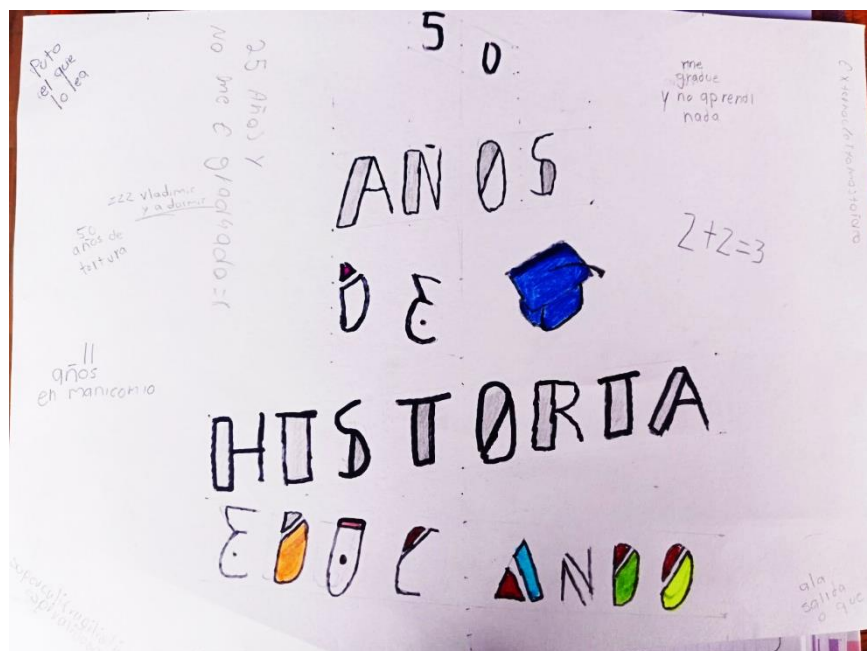 50
AÑOS
DE
HISTORIA
EDUCANDO
Puto
el que
lo lea
25 Años y
No me e
zzz vladimir
y a dormir
50
años de
tortura
11
años
en manicomio
me
gradue
y no aprendi
nada
2+2=3
ala
salida
o que